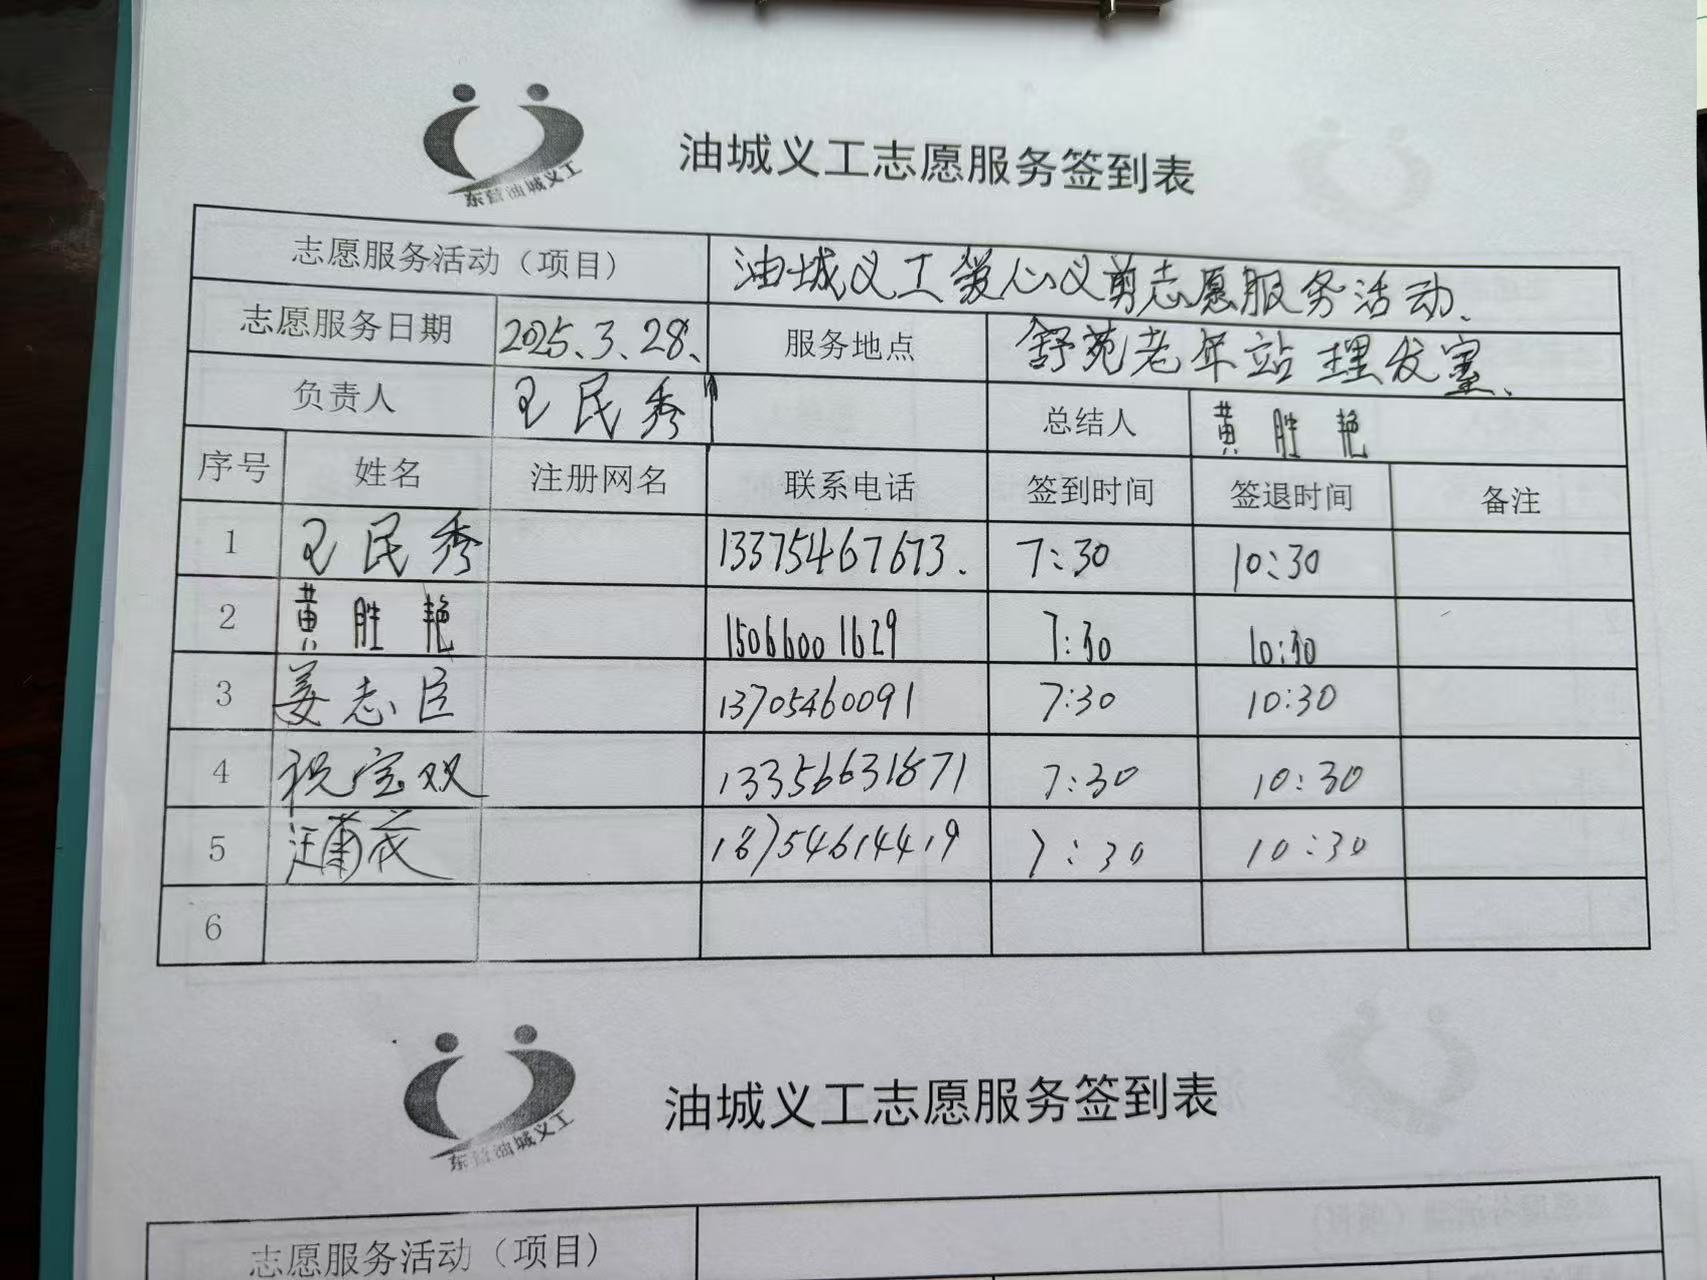 东营油城义工
油城义工志愿服务签到表
志愿服务活动（项目） 油城义工爱心义剪志愿服务活动、
志愿服务日期 2025、3、28、 服务地点 舒苑老年站理发室、
负责人 王民秀 总结人 黄胜艳
序号 姓名 注册网名 联系电话 签到时间 签退时间 备注
1 王民秀 13375467673. 7:30 10:30
2 黄胜艳 15066001629 7:30 10:30
3 姜志臣 13705460091 7:30 10:30
4 祝宝双 13356631871 7:30 10:30
5 18754614419 7:30 10:30
6
东营油城义工
油城义工志愿服务签到表
志愿服务活动（项目）